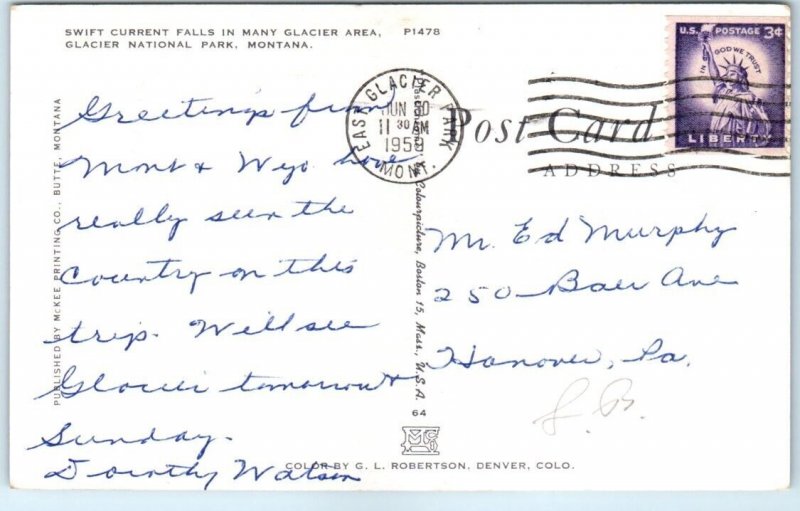 SWIFT CURRENT FALLS IN MANY GLACIER AREA, P1478
GLACIER NATIONAL PARK, MONTANA.
Greetings from
Mont & Wyo have
really seen the
country on this
trip. Will see
Glacier tomorrow &
Sunday.
Dorothy Watson
PUBLISHED BY McKEE PRINTING CO., BUTTE, MONTANA
EAST GLACIER PARK
JUN 30
11 30 AM
1958
MONT.
U.S. POSTAGE 3¢
IN GOD WE TRUST
LIBERTY
Post Card
ADDRESS
Mr. Ed Murphy
250 Baer Ave
Hanover, Pa.
Colourpicture, Boston 15, Mass., U.S.A.
64
COLOR BY G. L. ROBERTSON, DENVER, COLO.